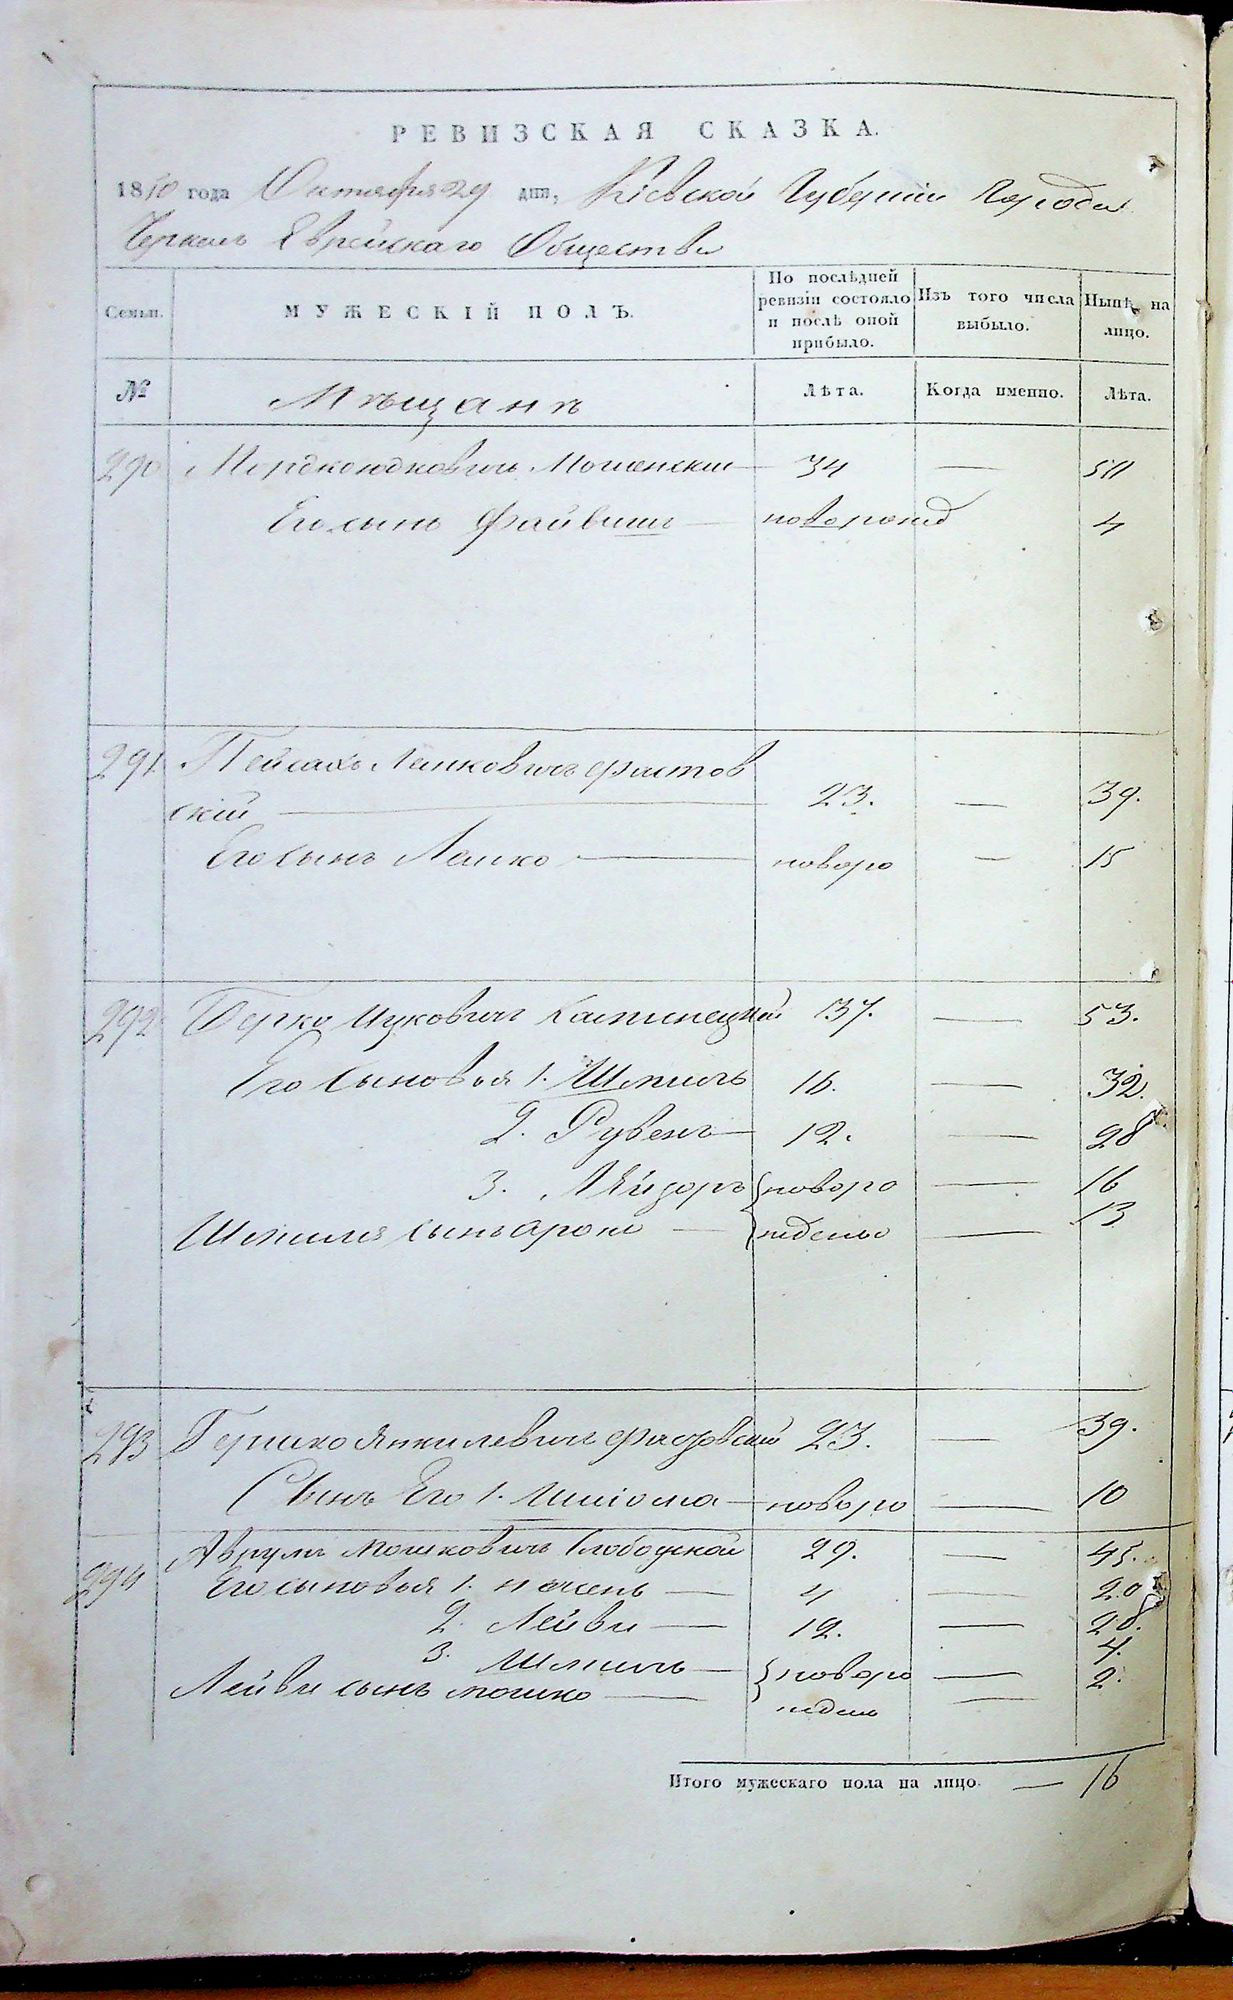 РЕВИЗСКАЯ СКАЗКА.
1850 года Октября 29 дня, Кіевской Губерніи Города
Черкасъ Еврейскаго Общества
Семьи.
МУЖЕСКІЙ ПОЛЪ.
По послѣдней ревизіи состояло и послѣ оной прибыло.
Изъ того числа выбыло.
Нынѣ на лицо.
№ Мѣщане Лѣта. Когда именно. Лѣта.
290 Мордко Юдковичъ Мошенскій 34 — 50
Его сынъ Файвишъ — новорожд 4
291 Пейсахъ Лейковичъ Фастов
ский — 23. — 39.
Его сынъ Лейко — новоро — 15
292 Берко Ицковичъ 37. — 53.
Его сыновья 1. Шмиль 16. — 32.
2. Рувенъ — 12. — 28
3. Лейзоръ новоро — 16
Шмиля сынъ Аронъ — жденъ — 13
293 Гершко Янкилевичъ Фастовский 23. — 39.
Сынъ Его 1. Шліома — новоро — 10
294 Аврумъ Мошковичъ Слободской 29. — 45.
Его сыновья 1. — 4 — 20
2. Лейви — 12. — 28.
3. Шмиль — новоро — 4.
Лейви сынъ Мошко — жден — 2.
Итого мужескаго пола на лицо — 16